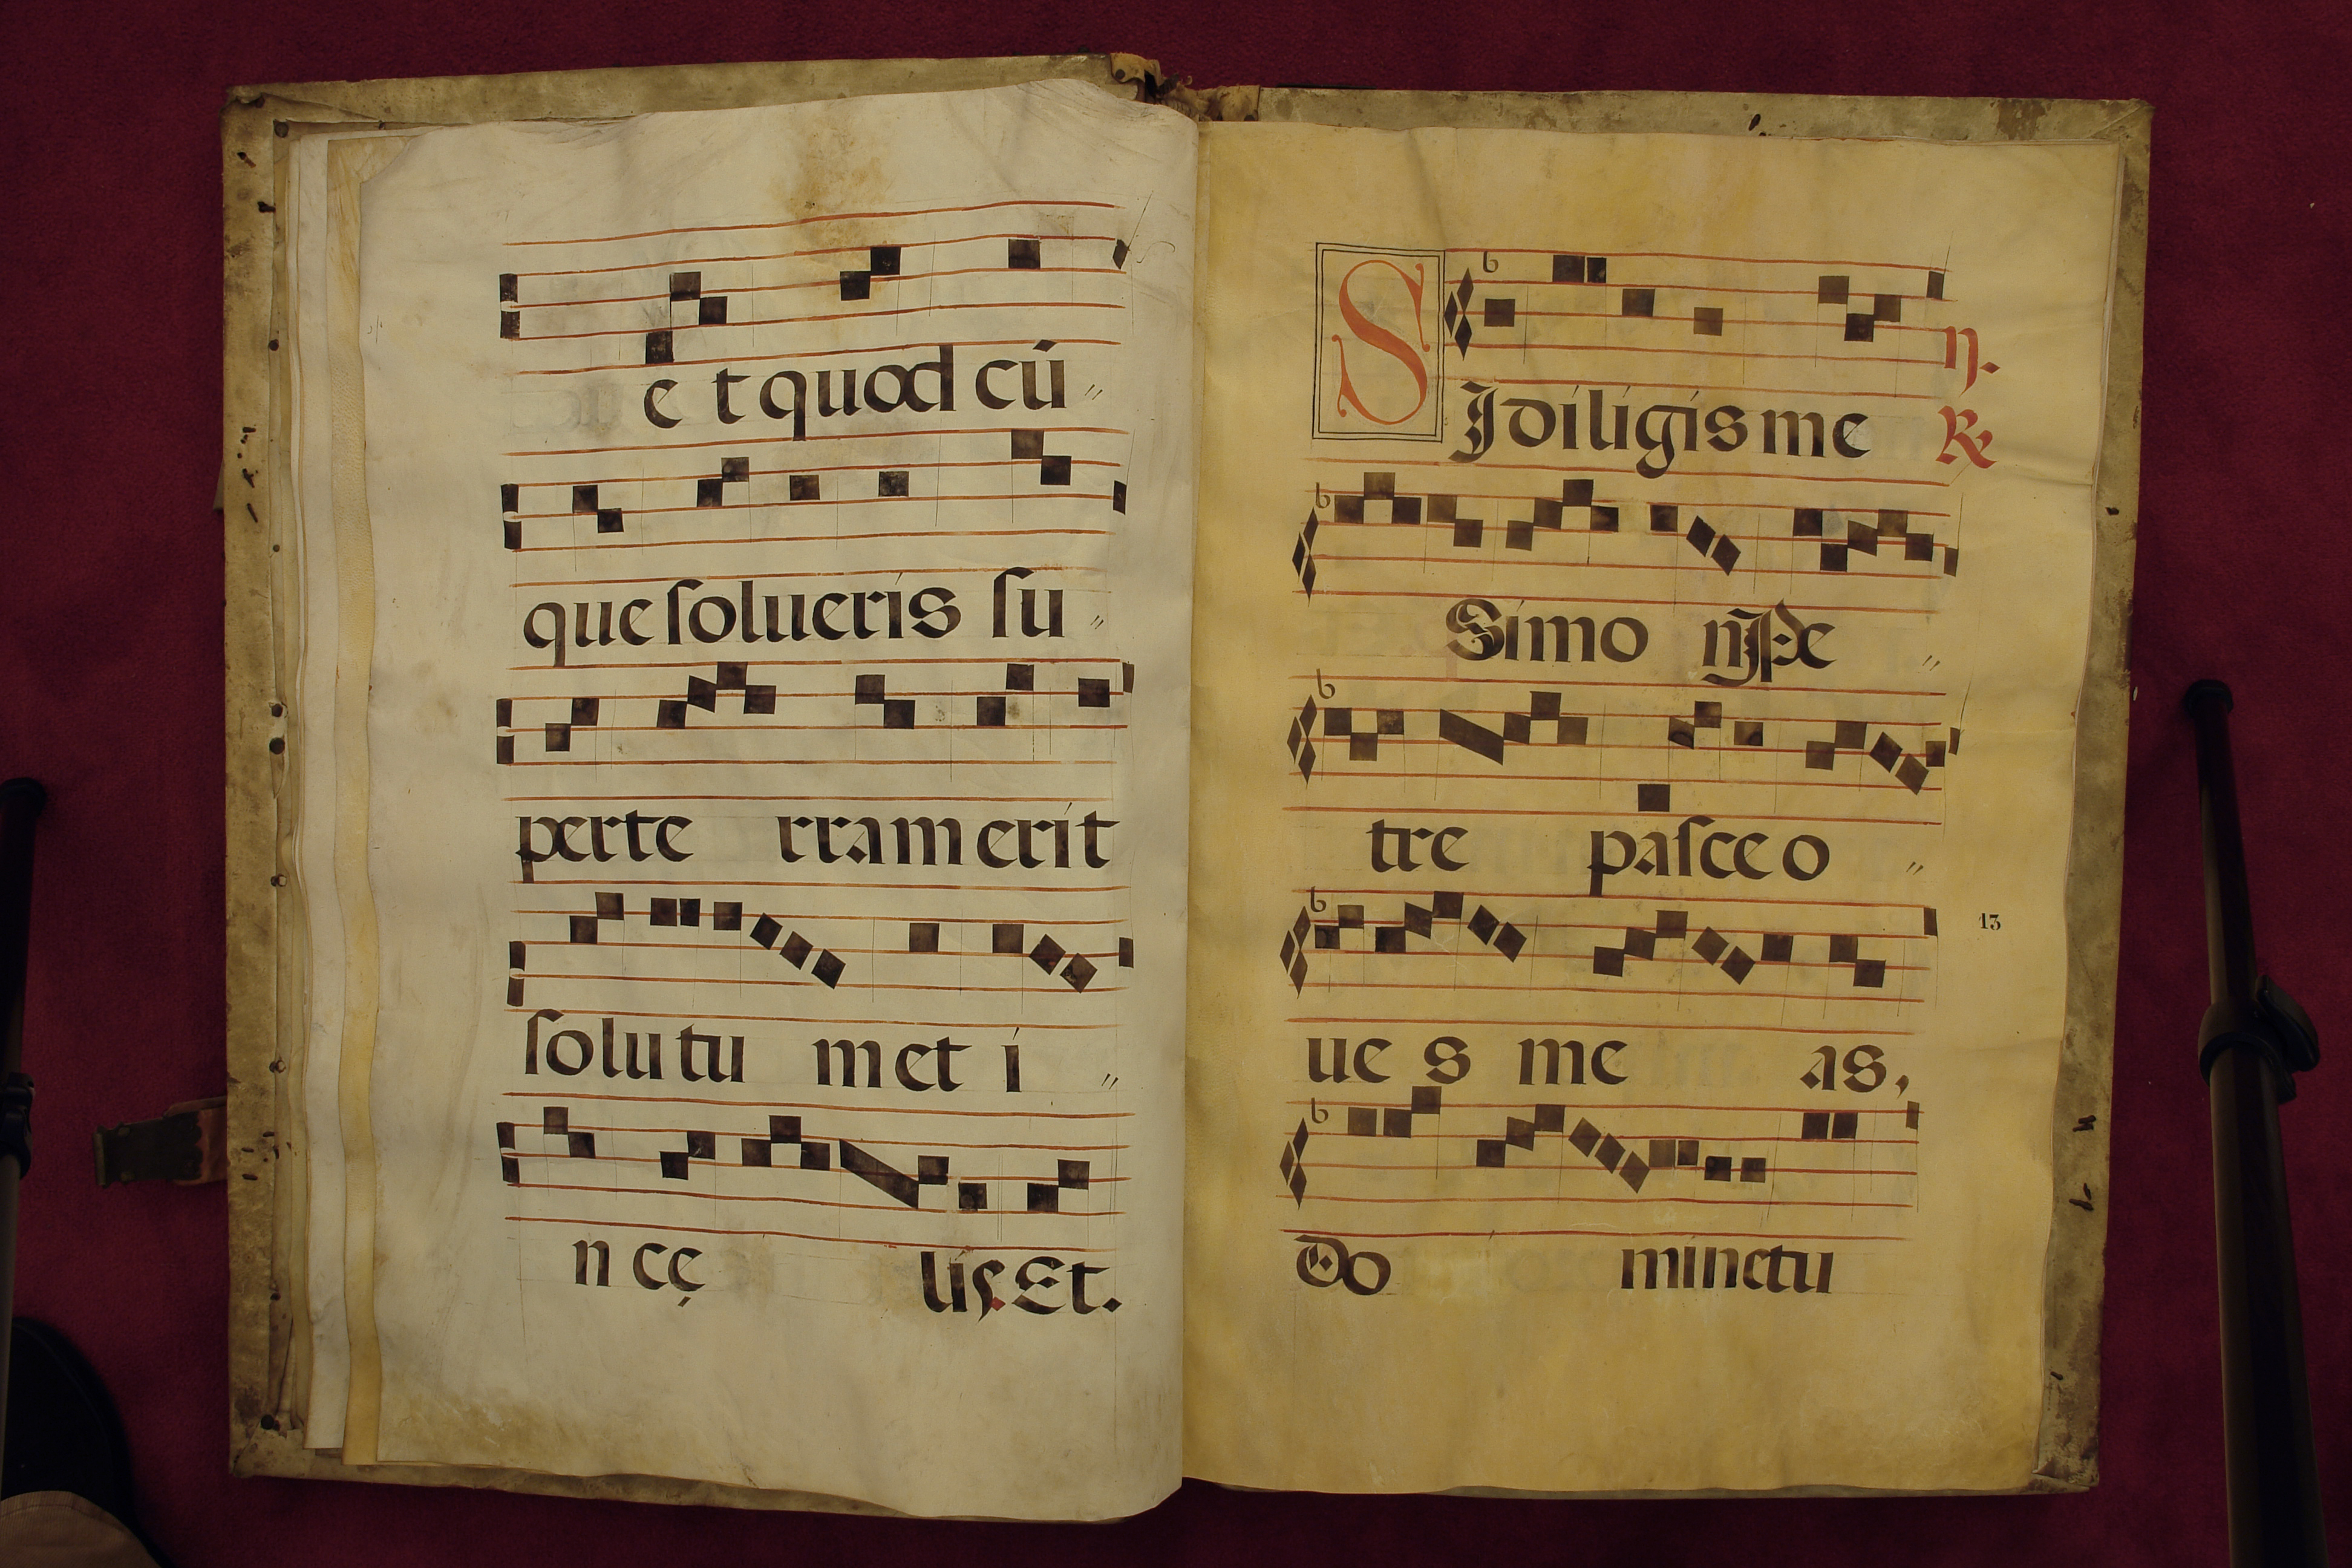 et quod cú
que ſolueris ſu
perte rram erit
ſolutu m et i
n cę liſ. Et.
SI diligis me
Simo
tre paſce o
ue s me as,
13
Do mine tu